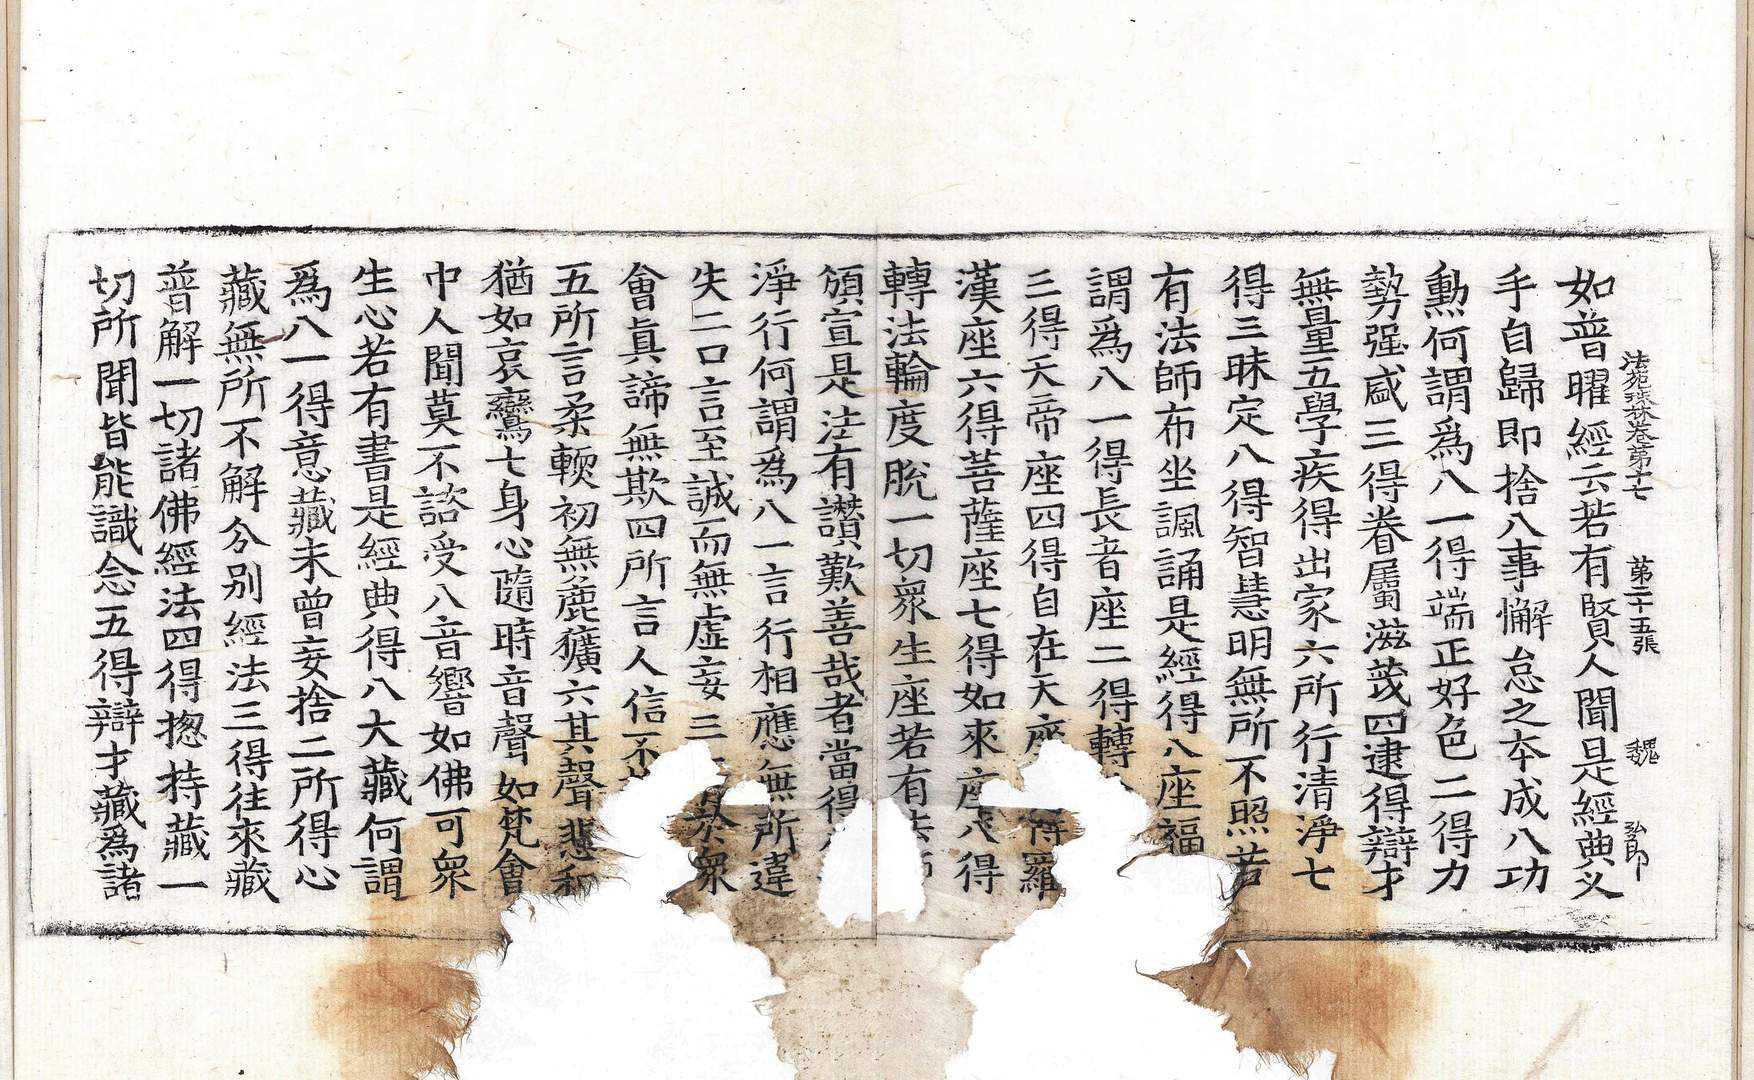 法苑珠林卷第十七　第二十五張　魏　弘郎
如普曜經云若有賢人聞是經典义
手自歸即捨八事懈怠之本成八功
勳何謂爲八一得端正好色二得力
勢强盛三得眷屬滋茂四逮得辯才
無量五學疾得出家六所行清淨七
得三昧定八得智慧明無所不照若
有法師布坐諷誦是經得八座福
謂爲八一得長者座二得轉
三得天帝座四得自在天座 得羅
漢座六得菩薩座七得如來座八得
轉法輪度脫一切衆生座若有法師
頒宣是法有讚歎善哉者當得
淨行何謂爲八一言行相應無所違
失二口言至誠而無虛妄三 衆
會真諦無欺四所言人信不
五所言柔軟初無麁獷六其聲悲和
猶如哀鸞七身心隨時音聲如梵會
中人聞莫不諮受八音響如佛可衆
生心若有書是經典得八大藏何謂
爲八一得意藏未曾妄捨二所得心
藏無所不解分別經法三得往來藏
普解一切諸佛經法四得揔持藏一
切所聞皆能識念五得辯才藏爲諸